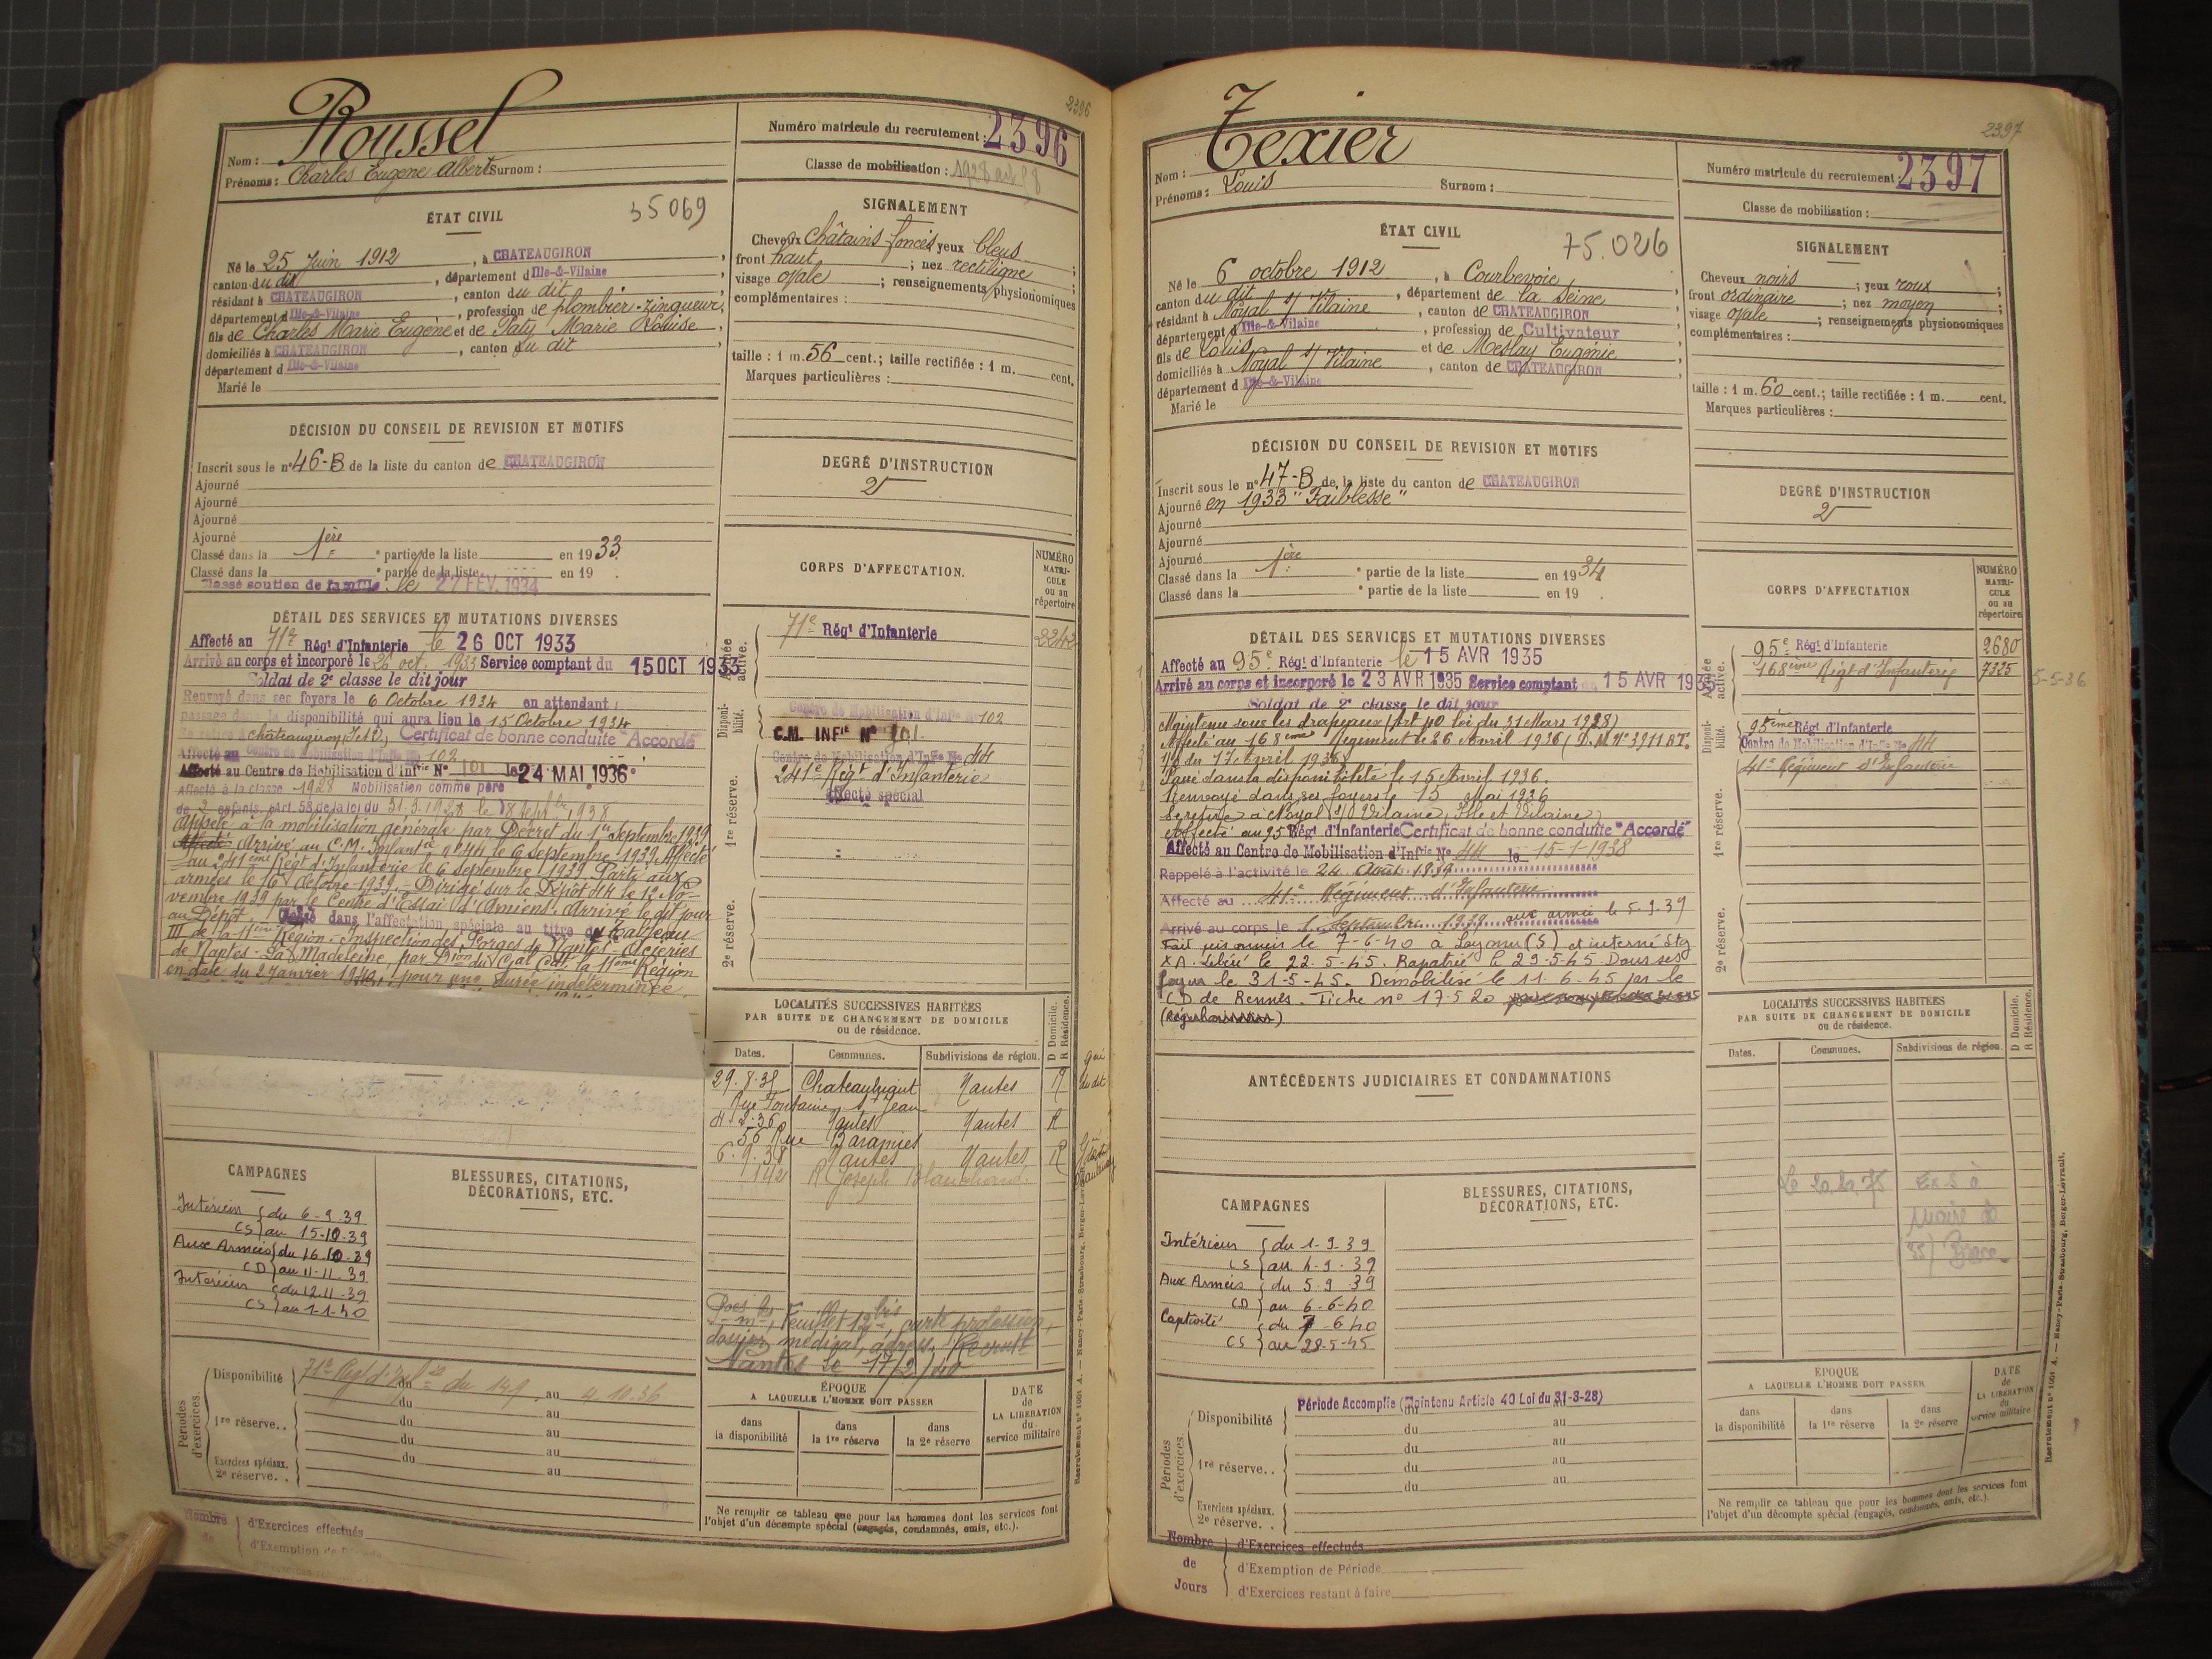 2396
Roussel
Nom :
Prénoms : Charles Eugène Albert Surnom :
Numéro matricule du recrutement : 2396
Classe de mobilisation : 1928
ÉTAT CIVIL
35069
Né le 25 Juin 1912, à CHATEAUGIRON,
canton du dit, département d Ille-&-Vilaine,
résidant à CHATEAUGIRON, canton du dit,
département d Ille-&-Vilaine, profession de plombier-zingueur,
fils de Charles Marie Eugène et de Paty Marie Louise,
domiciliés à CHATEAUGIRON, canton du dit,
département d Ille-&-Vilaine
Marié le
SIGNALEMENT
Cheveux châtains foncés yeux bleus ;
front haut ; nez rectiligne ;
visage ovale ; renseignements physionomiques
complémentaires :
taille : 1 m. 56 cent. ; taille rectifiée : 1 m. cent.
Marques particulières :
DÉCISION DU CONSEIL DE REVISION ET MOTIFS
Inscrit sous le n° 46-B de la liste du canton de CHATEAUGIRON
Ajourné
Ajourné
Ajourné
Ajourné
Classé dans la 1ère partie de la liste en 1933
Classé dans la partie de la liste en 19
Classé soutien de famille le 27 FEV. 1934
DEGRÉ D'INSTRUCTION
2
DÉTAIL DES SERVICES ET MUTATIONS DIVERSES
Affecté au 71e Régt d'Infanterie le 26 OCT 1933
Arrivé au corps et incorporé le 26 oct. 1933 Service comptant du 15 OCT 1933
Soldat de 2e classe le dit jour
Renvoyé dans ses foyers le 6 Octobre 1934 en attendant :
passage dans la disponibilité qui aura lieu le 15 Octobre 1934
Se retire à Châteaugiron (I et V) Certificat de bonne conduite "Accordé"
Affecté au Centre de Mobilisation d'Infie No 102
Affecté au Centre de Mobilisation d'Infrie N° 101 le 24 MAI 1936
Affecté à la classe 1928 Mobilisation comme père
de 2 enfants, Art. 58 de la loi du 31.3.1928 le 18 Septbre 1938
Appelé à la mobilisation générale par Décret du 1er Septembre 1939
Arrivé au C.M. Infantie n° 44 le 6 Septembre 1939. Affecté
au 241ème Régt d'Infanterie le 6 Septembre 1939. Parti aux
armées le 16 Octobre 1939. Dirigé sur le Dépôt 44 le 12 No-
vembre 1939 par le Centre d'Essai d'Amiens. Arrivé le dit jour
au Dépôt. Classé dans l'affectation spéciale au titre du Tableau
III de la 11ème Région. Inspection des Forges de Nantes - Aciéries
de Nantes - La Madeleine, par Dion du Gal Cdt la 11ème Région
en date du 2 Janvier 1940, pour une durée indéterminée
CORPS D'AFFECTATION.
NUMÉRO MATRI-CULE ou au répertoire
Armée active.
71e Régt d'Infanterie 2242
Disponi-bilité.
Centre de Mobilisation d'Infie No 102
C.M. INFie N° 101
1re réserve.
Centre de Mobilisation d'Infie No 44
241e Régt d'Infanterie
Affecté spécial
2e réserve.
LOCALITÉS SUCCESSIVES HABITÉES
PAR SUITE DE CHANGEMENT DE DOMICILE
ou de résidence.
D Domicile. R Résidence.
Dates. Communes. Subdivisions de région.
Nantes R
Rue Fontaine St Jean
Nantes Nantes R
56 Rue
6.9.38 Nantes Nantes R
142 R Joseph Blanchard
CAMPAGNES
Intérieur du 6-9-39
CS au 15-10-39
Aux Armées du 16-10-39
CD au 11-11-39
Intérieur du 12-11-39
CS au 1-1-40
BLESSURES, CITATIONS,
DÉCORATIONS, ETC.
Feuillet 12 bis, carte profession,
dossier médical, adress. Recrutt
Nantes le 17/2/40
Périodes d'exercices.
Disponibilité 71e Regt d'Infie du 14.9 au 4.10.36
1re réserve. . du au
du au
du au
Exercices spéciaux. 2e réserve. . du au
ÉPOQUE
A LAQUELLE L'HOMME DOIT PASSER
dans la disponibilité
dans la 1re réserve
dans la 2e réserve
DATE de LA LIBÉRATION du service militaire
Ne remplir ce tableau que pour les hommes dont les services font
l'objet d'un décompte spécial (engagés, condamnés, omis, etc.).
Nombre de
d'Exercices effectués
d'Exemption de
2397
Texier
Nom :
Prénoms : Louis Surnom :
Numéro matricule du recrutement 2397
Classe de mobilisation :
ÉTAT CIVIL
75.026
Né le 6 octobre 1912, à Courbevoie,
canton du dit, département de la Seine,
résidant à Noyal s/ Vilaine, canton de CHATEAUGIRON,
département d Ille-&-Vilaine, profession de Cultivateur,
fils de Louis et de Meslay Eugénie,
domiciliés à Noyal s/ Vilaine, canton de CHATEAUGIRON,
département d Ille-&-Vilaine
Marié le
SIGNALEMENT
Cheveux noirs ; yeux roux ;
front ordinaire ; nez moyen ;
visage ovale ; renseignements physionomiques
complémentaires :
taille : 1 m. 60 cent. ; taille rectifiée : 1 m. cent.
Marques particulières :
DÉCISION DU CONSEIL DE REVISION ET MOTIFS
Inscrit sous le n° 47-B de la liste du canton de CHATEAUGIRON
Ajourné en 1933 "Faiblesse"
Ajourné
Ajourné
Ajourné
Classé dans la 1ère partie de la liste en 1934
Classé dans la partie de la liste en 19
DEGRÉ D'INSTRUCTION
2
DÉTAIL DES SERVICES ET MUTATIONS DIVERSES
Affecté au 95e Régt d'Infanterie le 15 AVR 1935
Arrivé au corps et incorporé le 23 AVR 1935 Service comptant du 15 AVR 1935
Soldat de 2e classe le dit jour
Maintenu sous les drapeaux (Art 40 loi du 31 Mars 1928)
Affecté au 168ème Régiment le 26 Avril 1936 (D.M. N° 3911 BT.
1/2 du 17 Avril 1936)
Passé dans la disponibilité le 15 Avril 1936.
Renvoyé dans ses foyers le 15 Mai 1936
Se retire à Noyal s/ Vilaine, Ille et Vilaine
Affecté au 95 Régt d'Infanterie Certificat de bonne conduite "Accordé"
Affecté au Centre de Mobilisation d'Infrie N° 44 le 15-1-1938
Rappelé à l'activité le 24 Août 1939
Affecté au 41e Régiment d'Infanterie
Arrivé au corps le 1 Septembre 1939 aux armées le 5-9-39
Fait prisonnier le 7-6-40 à (S) et interné Stg
XA. Libéré le 22.5.45. Rapatrié le 29-5-45. Dans ses
foyers le 31-5-45. Démobilisé le 11.6.45 par le
CD de Rennes. Fiche n° 17520
CORPS D'AFFECTATION
NUMÉRO MATRI-CULE ou au répertoire
Armée active.
95e Régt d'Infanterie 2680
168ème Régt d'Infanterie 7325 5-5-36
Disponi-bilité.
95ème Régt d'Infanterie
Centre de Mobilisation d'Infie No 44
1re réserve.
41e Régiment d'Infanterie
2e réserve.
ANTÉCÉDENTS JUDICIAIRES ET CONDAMNATIONS
LOCALITÉS SUCCESSIVES HABITÉES
PAR SUITE DE CHANGEMENT DE DOMICILE
ou de résidence.
D Domicile. R Résidence.
Dates. Communes. Subdivisions de région.
CAMPAGNES
Intérieur du 1-9-39
CS au 4-9-39
Aux Armées du 5-9-39
CD au 6-6-40
Captivité du 7-6-40
CS au 28-5-45
BLESSURES, CITATIONS,
DÉCORATIONS, ETC.
Périodes d'exercices.
Disponibilité Période Accomplie (Maintenu Article 40 Loi du 31-3-28)
du au
1re réserve. . du au
du au
du au
Exercices spéciaux. 2e réserve. .
ÉPOQUE
A LAQUELLE L'HOMME DOIT PASSER
dans la disponibilité
dans la 1re réserve
dans la 2e réserve
DATE de LA LIBÉRATION du service militaire
Ne remplir ce tableau que pour les hommes dont les services font
l'objet d'un décompte spécial (engagés, condamnés, omis, etc.).
Nombre de Jours
d'Exercices effectués
d'Exemption de Période
d'Exercices restant à faire